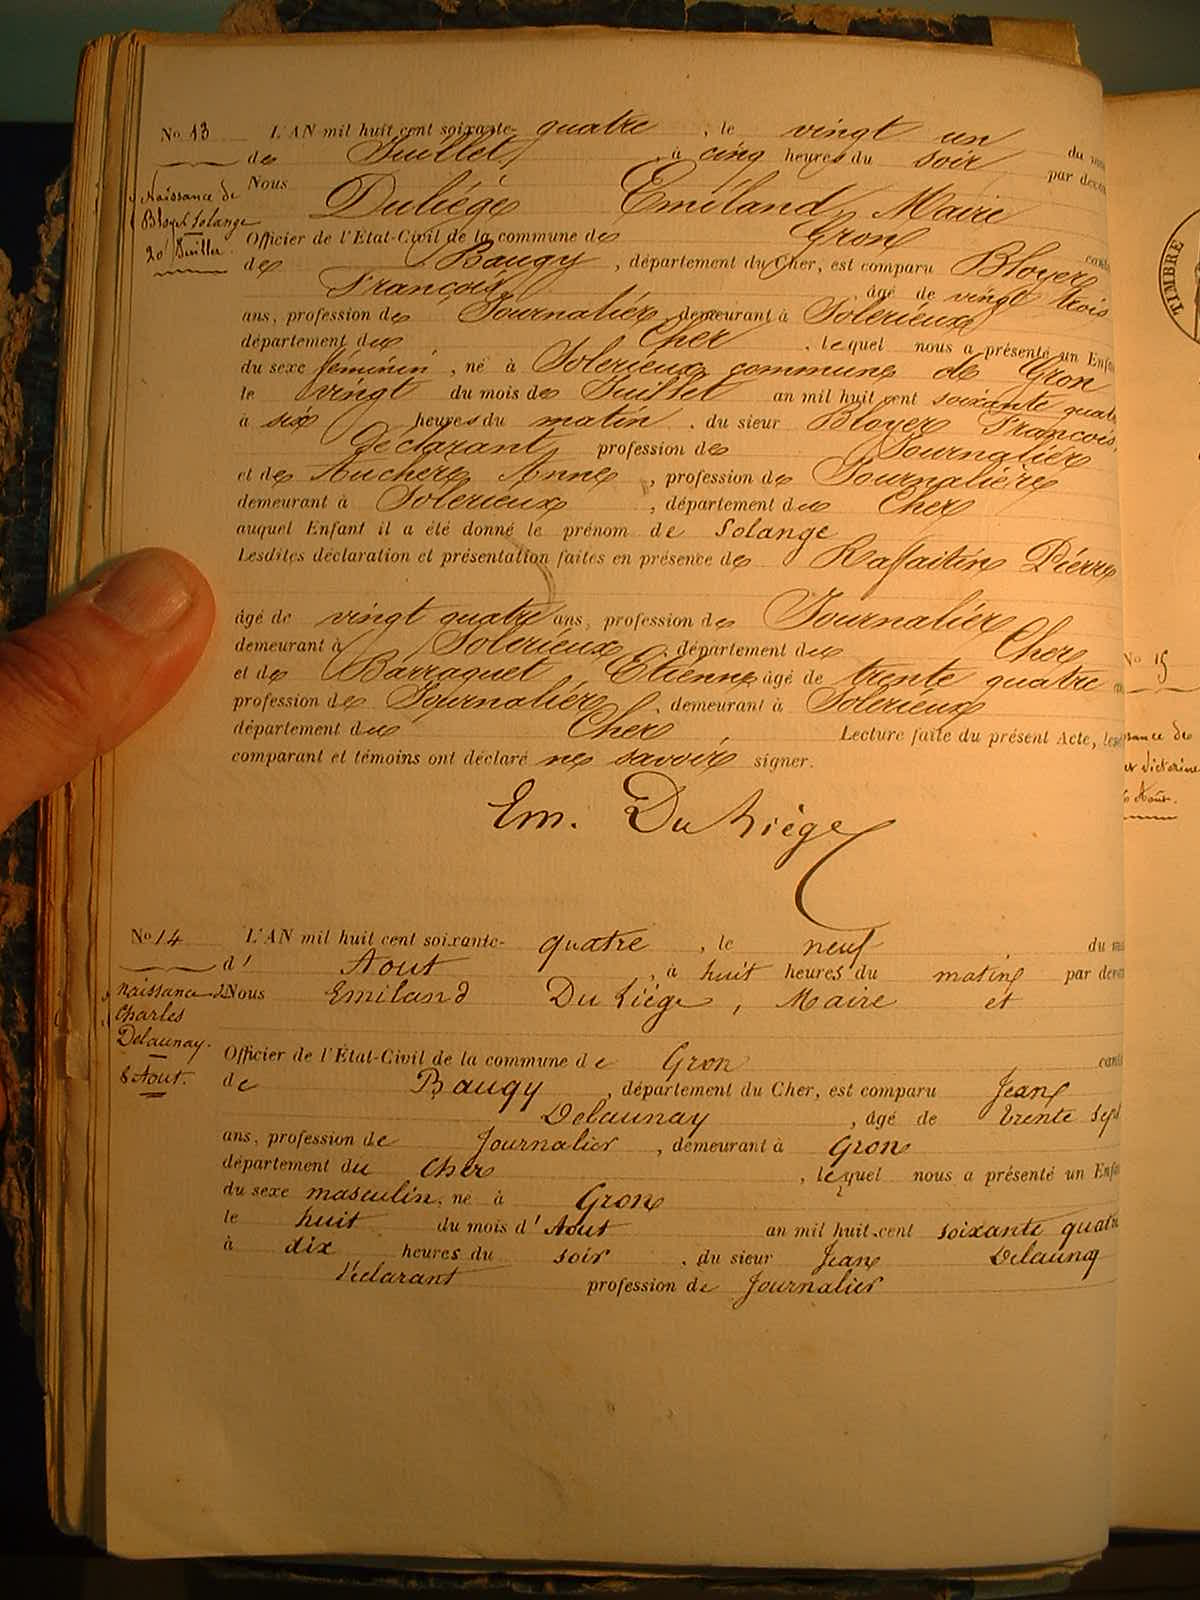 No 13
L'AN mil huit cent soixante- quatre , le vingt un du m
de Juillet , à cinq heures du soir par devan
Naissance de
Bloyer Solange
20 Juillet
Nous Duliége Emiland Maire
Officier de l'État-Civil de la commune de Gron cant
de Baugy , département du Cher, est comparu Bloyer
François , âgé de vingt trois
ans, profession de Journalier , demeurant à Solerieux
département du Cher , lequel nous a présenté un Enfa
du sexe féminin , né à Solerieux commune de Gron
le vingt du mois de Juillet an mil huit cent soixante quatr
à six heures du matin , du sieur Bloyer François,
déclarant profession de Journalier
et de Auchere Anne , profession de Journalière
demeurant à Solerieux , département du Cher
auquel Enfant il a été donné le prénom de Solange
Lesdites déclaration et présentation faites en présence de Raffaitin Pierre
âgé de vingt quatre ans, profession de Journalier
demeurant à Solerieux , département du Cher
et de Barraquet Etienne âgé de trente quatre
profession de Journalier , demeurant à Solerieux
département du Cher Lecture faite du présent Acte, les
comparant et témoins ont déclaré ne savoir signer.
Em. DuLiège
No 14
L'AN mil huit cent soixante- quatre , le neuf du m
d' Aout , à huit heures du matin par devan
naissance de
Charles
Delaunay.
8 Aout.
Nous Emiland Du Liége , Maire et
Officier de l'État-Civil de la commune de Gron cant
de Baugy , département du Cher, est comparu Jean
Delaunay , âgé de trente sept
ans, profession de Journalier , demeurant à Gron
département du Cher , lequel nous a présenté un Enfa
du sexe masculin, né à Gron
le huit du mois d' Aout an mil huit cent soixante quatr
à dix heures du soir , du sieur Jean Delaunay
déclarant profession de Journalier
TIMBRE
No 15
sance de
Victorine
Aout.